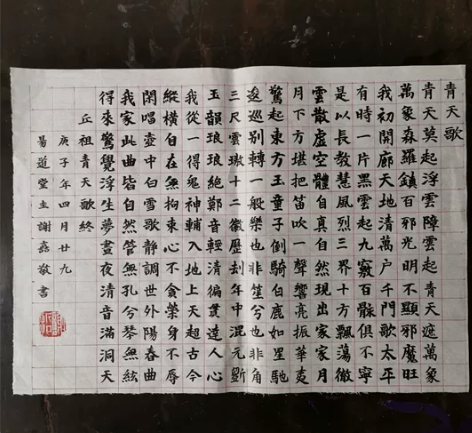 青天歌
青天莫起浮雲障雲起青天遮萬象
萬象森羅鎮百邪光明不顯邪魔旺
我初開廓天地清萬户千門歌太平
有時一片黑雲起九竅百骸俱不寧
是以長教慧風烈三界十方飄蕩徹
雲散虛空體自真自然現出家家月
月下方堪把笛吹一聲響亮振華夷
驚起東方玉童子倒騎白鹿如星馳
逡巡別轉一般樂也非笙兮也非角
三尺雲璈十二徽歷劫年中混元斵
玉韻琅琅絕鄭音輕清徧貫達人心
我從一得鬼神輔入地上天超古今
縱橫自在無拘束心不貪榮身不辱
閑唱壺中白雪歌靜調世外陽春曲
我家此曲皆自然管無孔兮琴無絃
得來驚覺浮生夢晝夜清音滿洞天
丘祖青天歌終
庚子年四月廿九
易道堂主謝鑫敬書